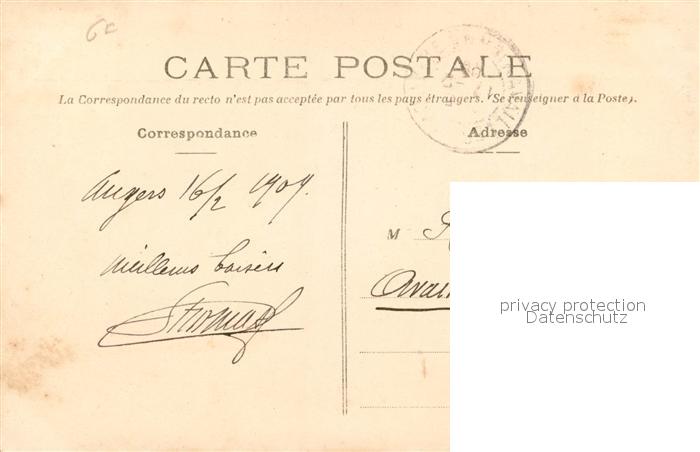 6c
CARTE POSTALE
La Correspondance du recto n'est pas acceptée par tous les pays étrangers. (Se renseigner a la Poste).
Correspondance
Adresse
Angers 16/2 1909.
Meilleurs baisers
M
privacy protection
Datenschutz